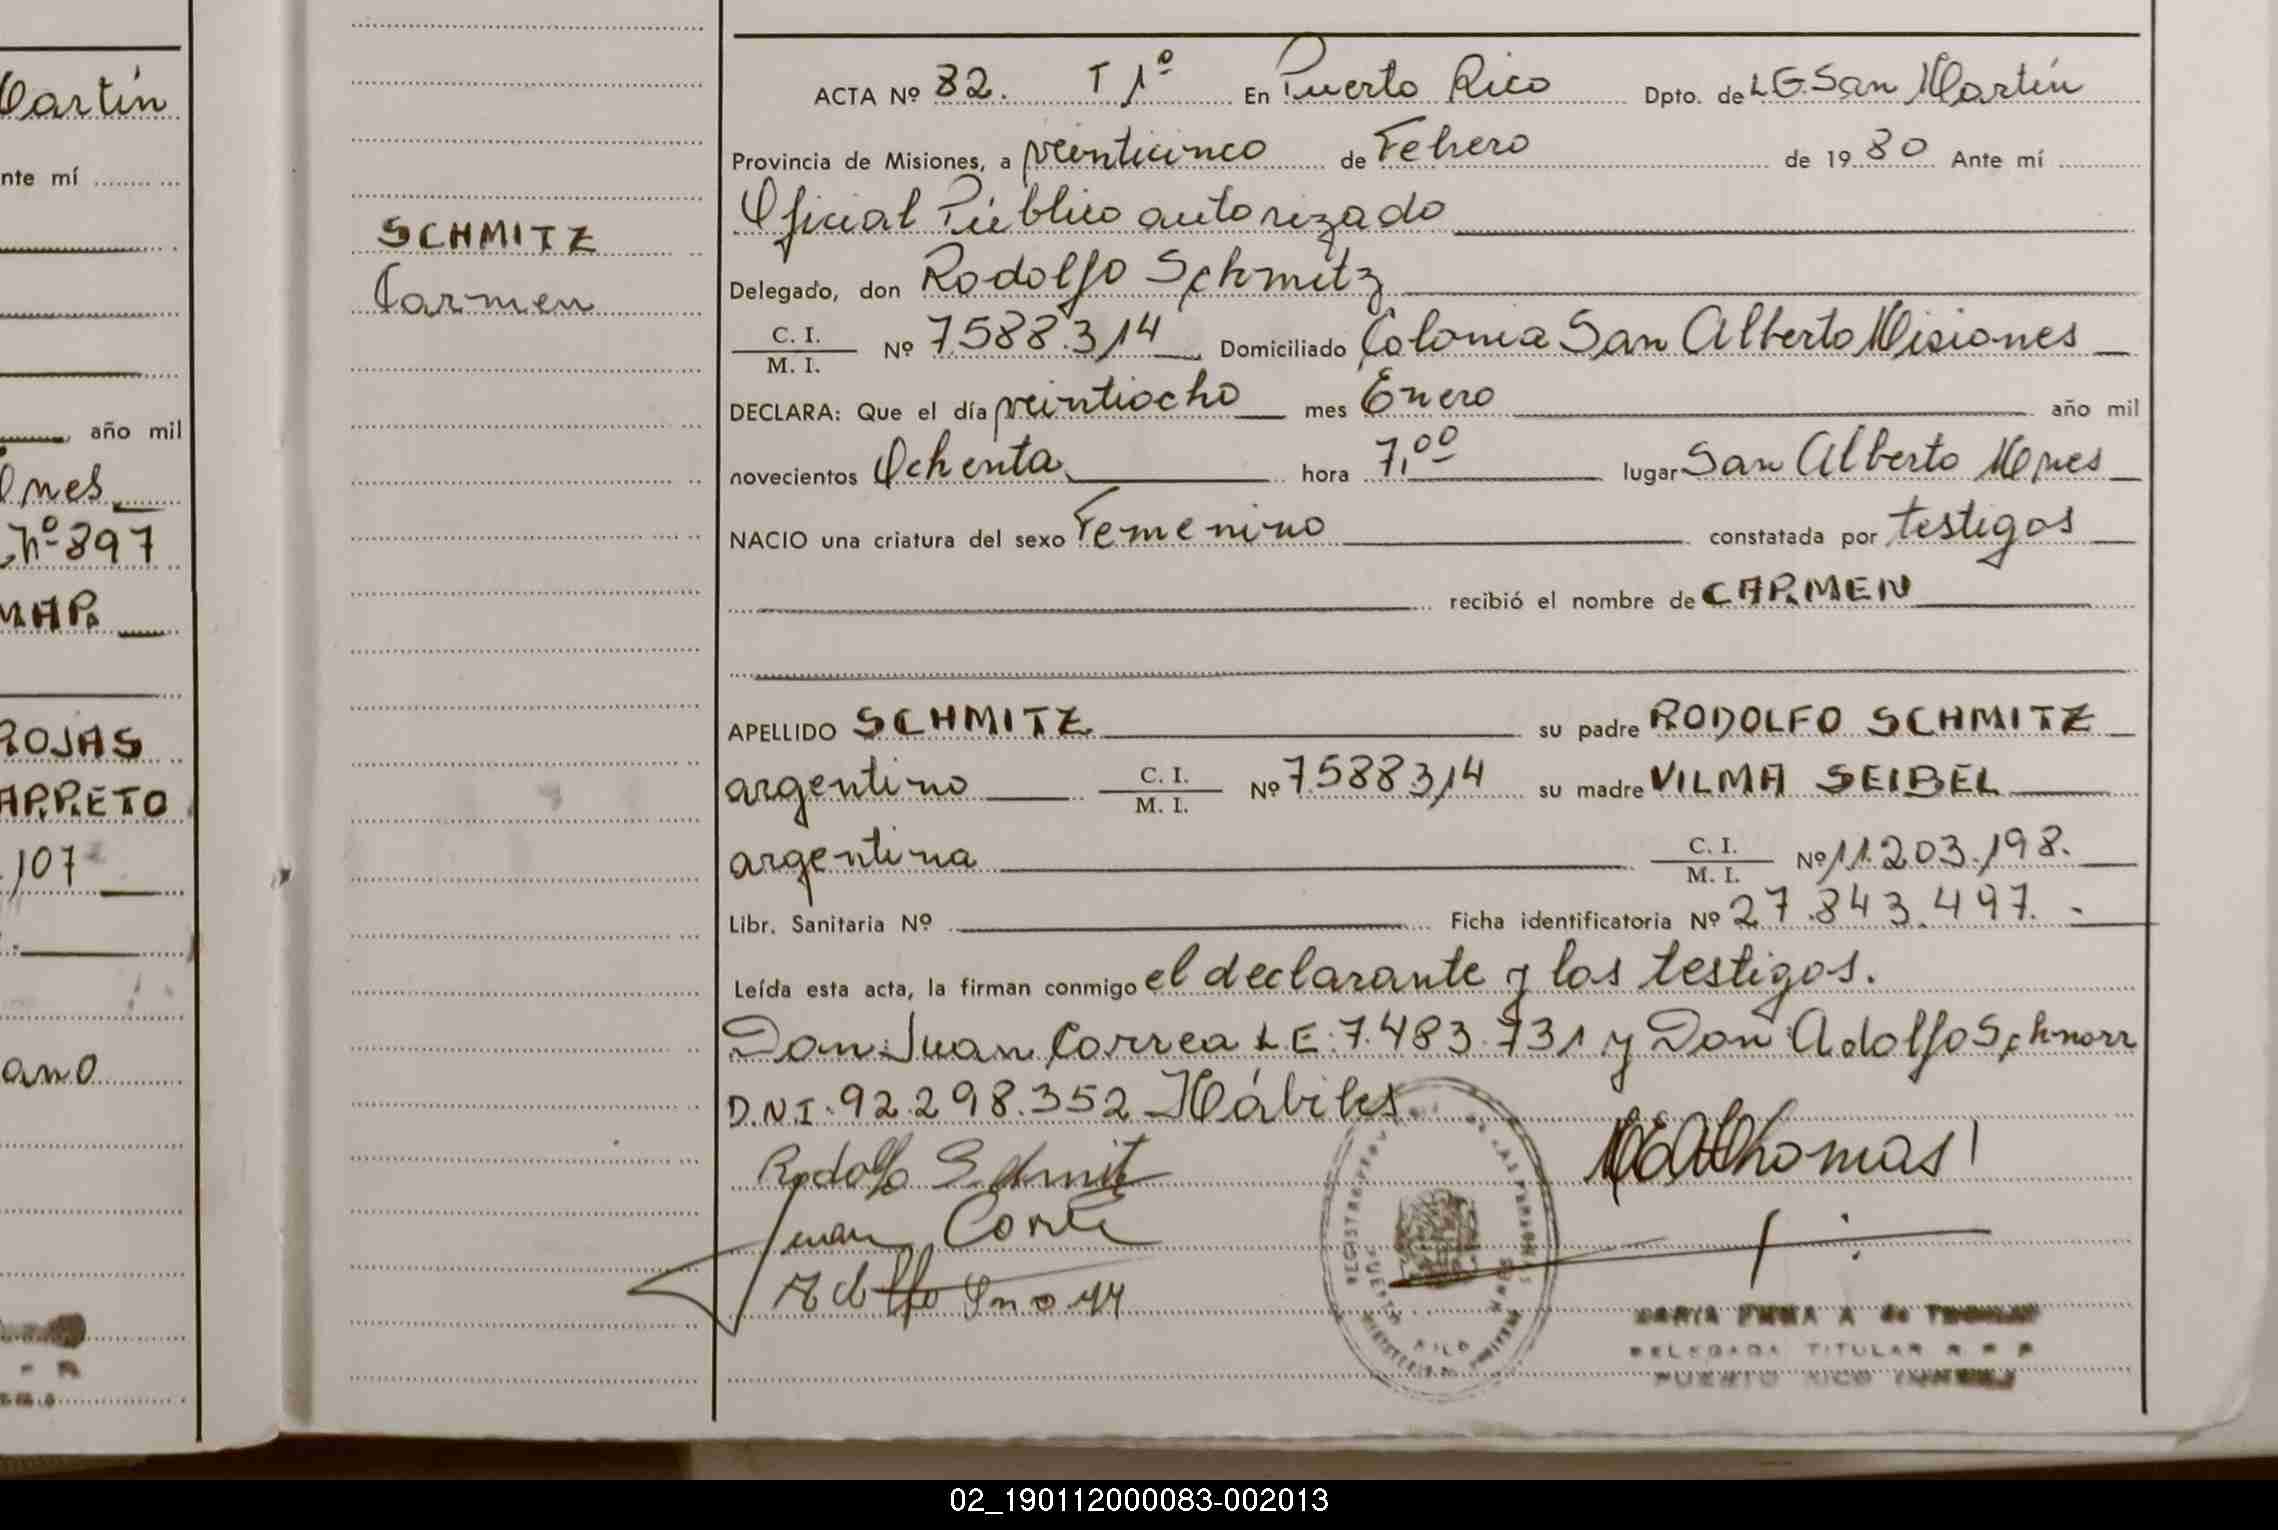 artín
nte mí
año mil
Mnes
Nº 897
MAR
ROJAS
ARRETO
107
ano
SCHMITZ
Carmen
ACTA Nº 82. T 1º En Puerto Rico Dpto. de L.G. San Martín
Provincia de Misiones, a veinticinco de Febrero de 1980 Ante mí
Oficial Público autorizado
Delegado, don Rodolfo Schmitz
C. I. / M. I. Nº 7.588.314 Domiciliado Colonia San Alberto Misiones
DECLARA: Que el día veintiocho mes Enero año mil
novecientos Ochenta hora 7,00 lugar San Alberto Mnes
NACIO una criatura del sexo Femenino constatada por testigos
recibió el nombre de CARMEN
APELLIDO SCHMITZ su padre RODOLFO SCHMITZ
argentino C. I. / M. I. Nº 7.588.314 su madre VILMA SEIBEL
argentina C. I. / M. I. Nº 11.203.198.
Libr. Sanitaria Nº Ficha identificatoria Nº 27.843.497.-
Leída esta acta, la firman conmigo el declarante y los testigos.
Don Juan Correa L.E. 7.483.731 y Don Adolfo Schnorr
D.N.I. 92.298.352 Hábiles
Rodolfo Schmitz
Juan Corre
MEAThomas
Adolfo
REGISTRO PROV DE LAS PERSONAS
PUERTO RICO
MARIA EMMA A de THOMAS
DELEGADA TITULAR R P P
PUERTO RICO (MNES)
02_190112000083-002013